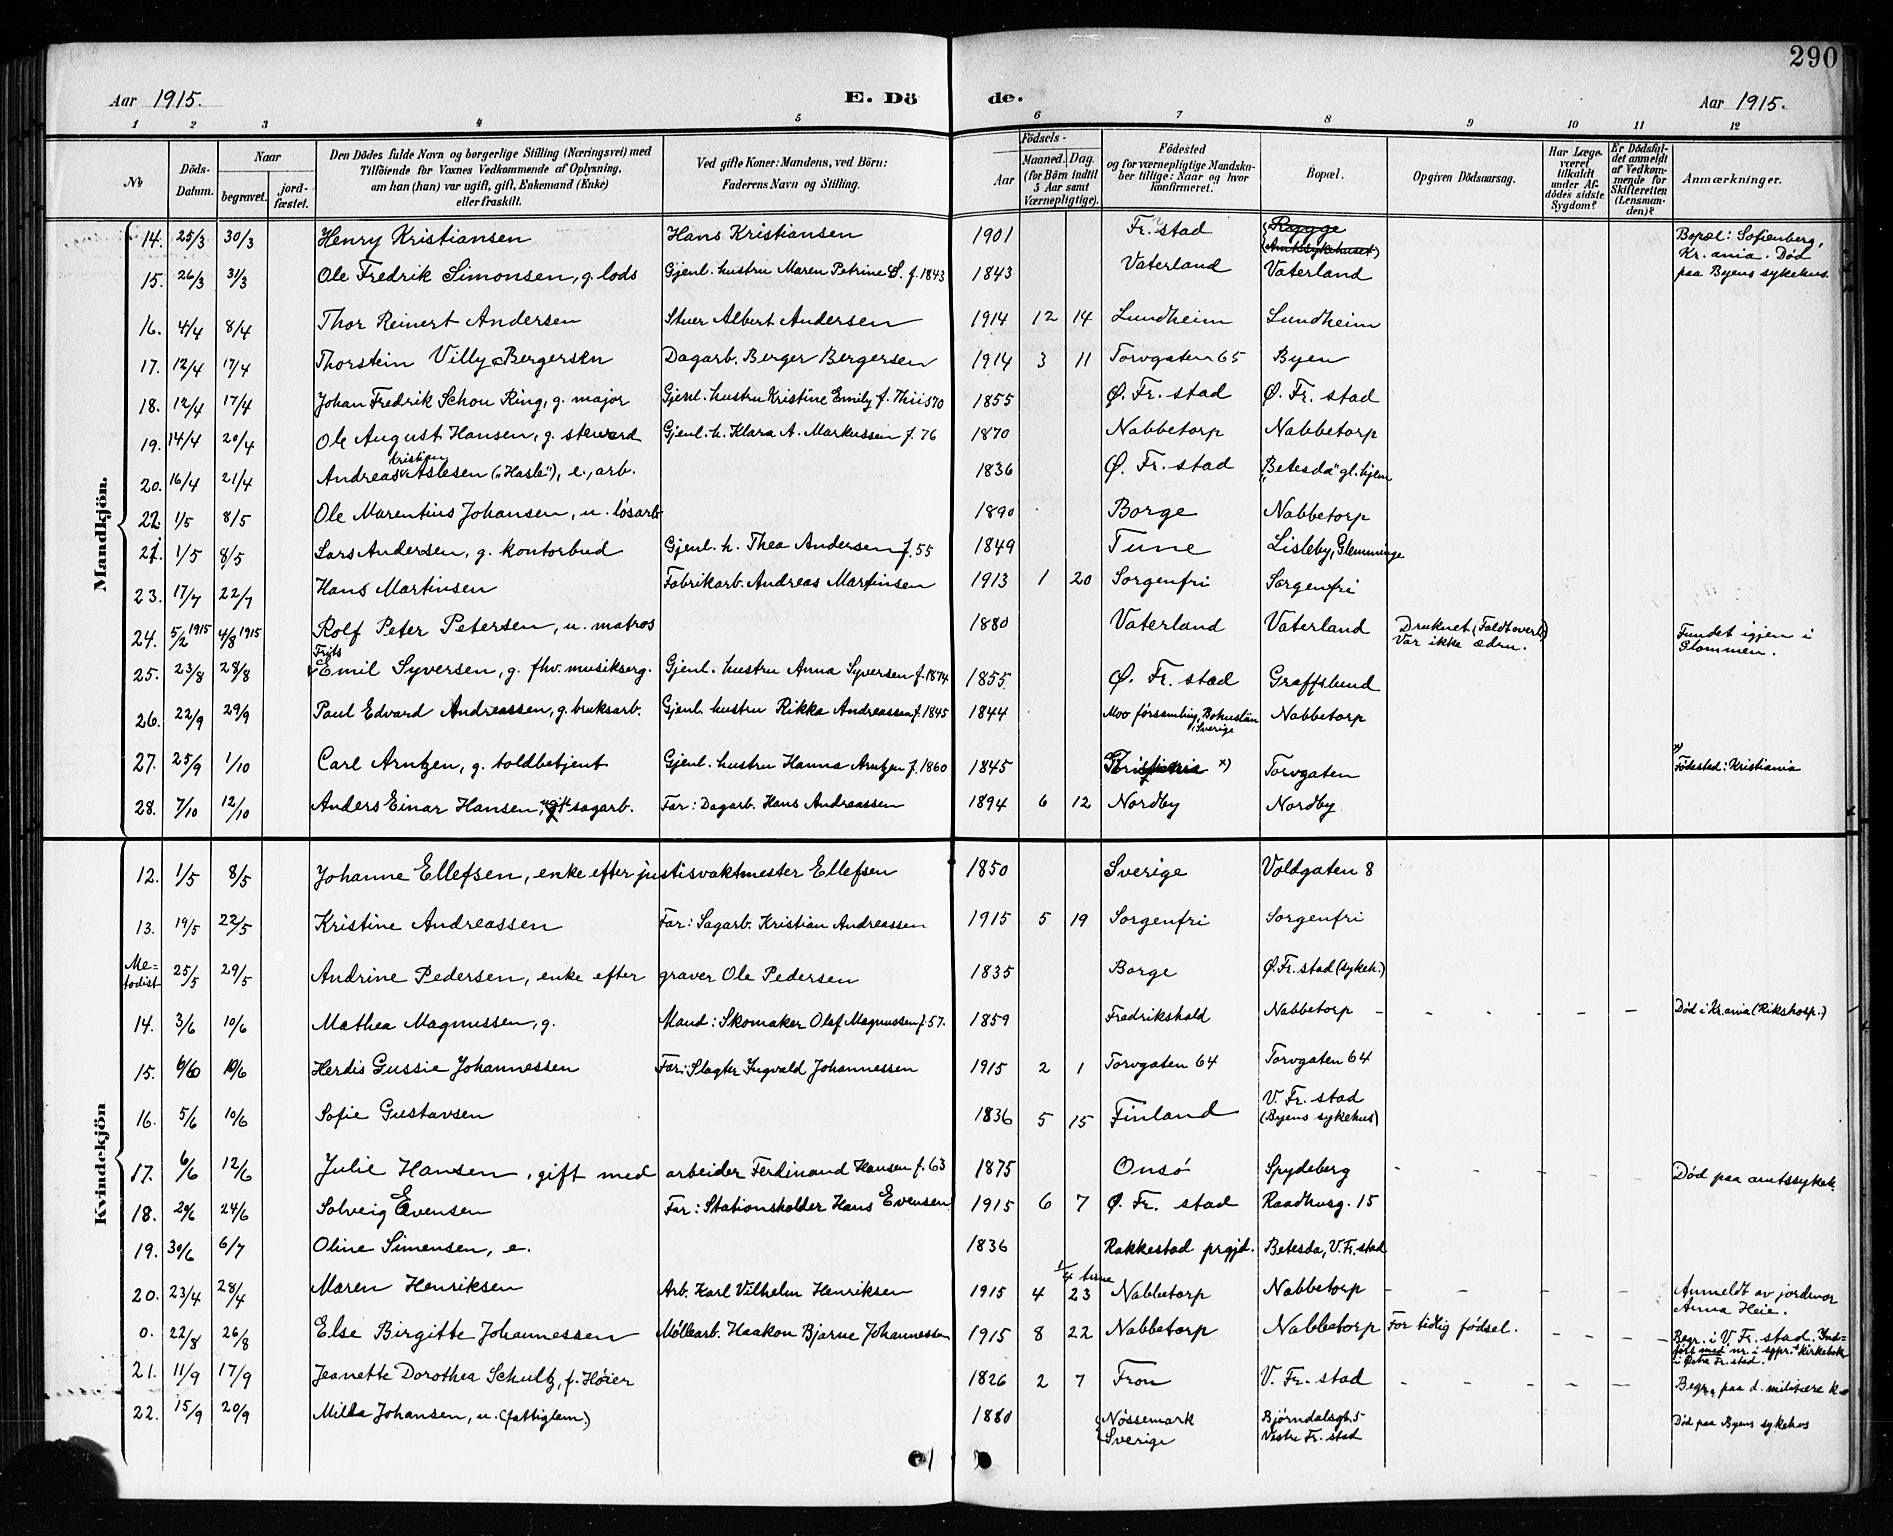 290
Aar 1915. E. Dö de. Aar 1915.
1 2 3 4 5 6 7 8 9 10 11 12
No
Döds-Datum.
Naar
begravet.
jordfæstet.
Den Dödes fulde Navn og borgerlige Stilling (Næringsvei) med
Tilföiende for Voxnes Vedkommende af Oplysning,
om han (hun) var ugift, gift, Enkemand (Enke)
eller fraskilt.
Ved gifte Koner: Mandens, ved Börn:
Faderens Navn og Stilling.
Födsels-
Aar Maaned. Dag.
(for Börn indtil
5 Aar samt
Værnepligtige).
Födested
og for værnepligtige Mandskaber tillige: Naar og hvor
konfirmeret.
Bopæl.
Opgiven Dödsaarsag.
Har Læge
været
tilkaldt
under Afdödes sidste
Sygdom?
Er Dödsfaldet anmeldt
af Vedkommende for
Skifteretten
(Lensmanden)?
Anmærkninger.
Mandkjön.
14. 25/3 30/3 Henry Kristiansen Hans Kristiansen 1901 Fr. stad Rygge (Amtssykehuset) Bopæl: Sofienberg, Kr.ania. Død paa Byens sykehus.
15. 26/3 31/3 Ole Fredrik Simonsen, g. lods Gjenl. hustru Maren Petrine S. f. 1843 1843 Vaterland Vaterland
16. 4/4 8/4 Thor Reinert Andersen Stuer Albert Andersen 1914 12 14 Lundheim Lundheim
17. 12/4 17/4 Thorstein Villy Bergersen Dagarb. Berger Bergersen 1914 3 11 Torvgaten 65 Byen
18. 12/4 17/4 Johan Fredrik Schou Ring, g. major Gjenl. hustru Kristine Emily f. Thiis 70 1855 Ø. Fr. stad Ø. Fr. stad
19. 14/4 20/4 Ole August Hansen, g. steward Gjenl. h. Klara A. Markussen f. 76 1870 Nabbetorp Nabbetorp
20. 16/4 21/4 Andreas Kristian Aslesen („Hasle"), e., arb. 1836 Ø. Fr. stad „Betesda" gl. hjem
22. 1/5 8/5 Ole Marentius Johansen, u. løsarb 1890 Borge Nabbetorp
21. 1/5 8/5 Lars Andersen, g. kontorbud Gjenl. h. Thea Andersen f. 55 1849 Tune Lisleby, Glemminge
23. 17/7 22/7 Hans Martinsen Fabrikarb. Andreas Martinsen 1913 1 20 Sorgenfri Sorgenfri
24. 5/2 1915 4/8 1915 Rolf Peter Petersen, u. matros 1880 Vaterland Vaterland Druknet (Faldt overb.) Var ikke ædru. Fundet igjen i Glommen.
25. 23/8 28/8 Frits Emil Syversen, g. fhv. musikserg. Gjenl. hustru Anna Syversen f. 1874 1855 Ø. Fr. stad Graffslund
26. 22/9 29/9 Paul Edvard Andreassen, g. bruksarb. Gjenl. hustru Rikka Andreassen f. 1845 1844 Moo församling, Bohuslän Sverige Nabbetorp
27. 25/9 1/10 Carl Arntzen, g. toldbetjent Gjenl. hustru Hanna Arntzen f. 1860 1845 x) Torvgaten x) Fødested: Kristiania
28. 7/10 12/10 Anders Einar Hansen, sagarb. Far: Dagarb. Hans Andreassen 1894 6 12 Nordby Nordby
Kvindekjön
12. 1/5 8/5 Johanne Ellefsen, enke efter justisvaktmester Ellefsen 1850 Sverige Voldgaten 8
13. 19/5 22/5 Kristine Andreassen Far: Sagarb. Kristian Andreassen 1915 5 19 Sorgenfri Sorgenfri
Metodist 25/5 29/5 Andrine Pedersen, enke efter graver Ole Pedersen 1835 Borge Ø. Fr. stad (sykeh.)
14. 3/6 10/6 Mathea Magnussen, g. Mand: Skomaker Olaf Magnussen f. 57. 1859 Fredrikshald Nabbetorp - - - - - Død i Kr.ania (Rikshosp.)
15. 6/6 10/6 Herdis Gussie Johannessen Far: Slagter Ingvald Johannessen 1915 2 1 Torvgaten 64 Torvgaten 64
16. 5/6 10/6 Sofie Gustavsen 1836 5 15 Finland V. Fr. stad (Byens sykehus)
17. 6/6 12/6 Julie Hansen, gift med arbeider Ferdinand Hansen f. 63 1875 Onsø Spydeberg - - - - - Død paa amtssykeh.
18. 20/6 24/6 Solveig Evensen Far: Stationsholder Hans Evensen 1915 6 7 Ø. Fr. stad Raadhusg. 15
19. 30/6 6/7 Oline Simensen, e. 1836 Rakkestad prgjd. Betesda, V. Fr. stad
20. 23/4 28/4 Maren Henriksen Arb. Karl Vilhelm Henriksen 1915 4 23 1/4 time Nabbetorp Nabbetorp - - - - - Anmeldt av jordmor Anna Heie.
0. 22/8 26/8 Else Birgitte Johannessen Møllearb. Haakon Bjarne Johannessen 1915 8 22 Nabbetorp Nabbetorp For tidlig fødsel. - - - - Begr. i V. Fr. stad. Indført med nr. i sgpr. kirkebok i Østre Fr. stad.
21. 11/9 17/9 Jeanette Dorothea Schultz, f. Høier 1826 2 7 Fron V. Fr. stad - - - - - Begr. paa d. militære k
22. 15/9 20/9 Milda Johansen, u. (fattiglem) 1880 Nössemark Sverige Bjørndalsgt. 5 Vestre Fr. stad Død paa Byens sykehus